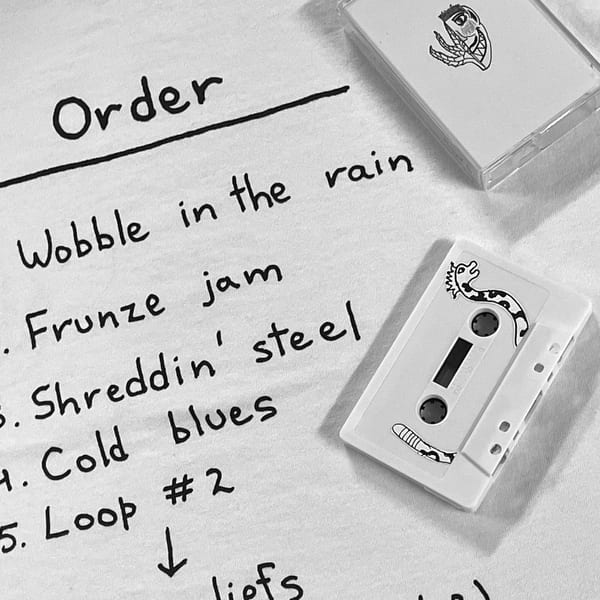 Order
Wobble in the rain
. Frunze jam
3. Shreddin' steel
4. Cold blues
5. Loop #2
↓